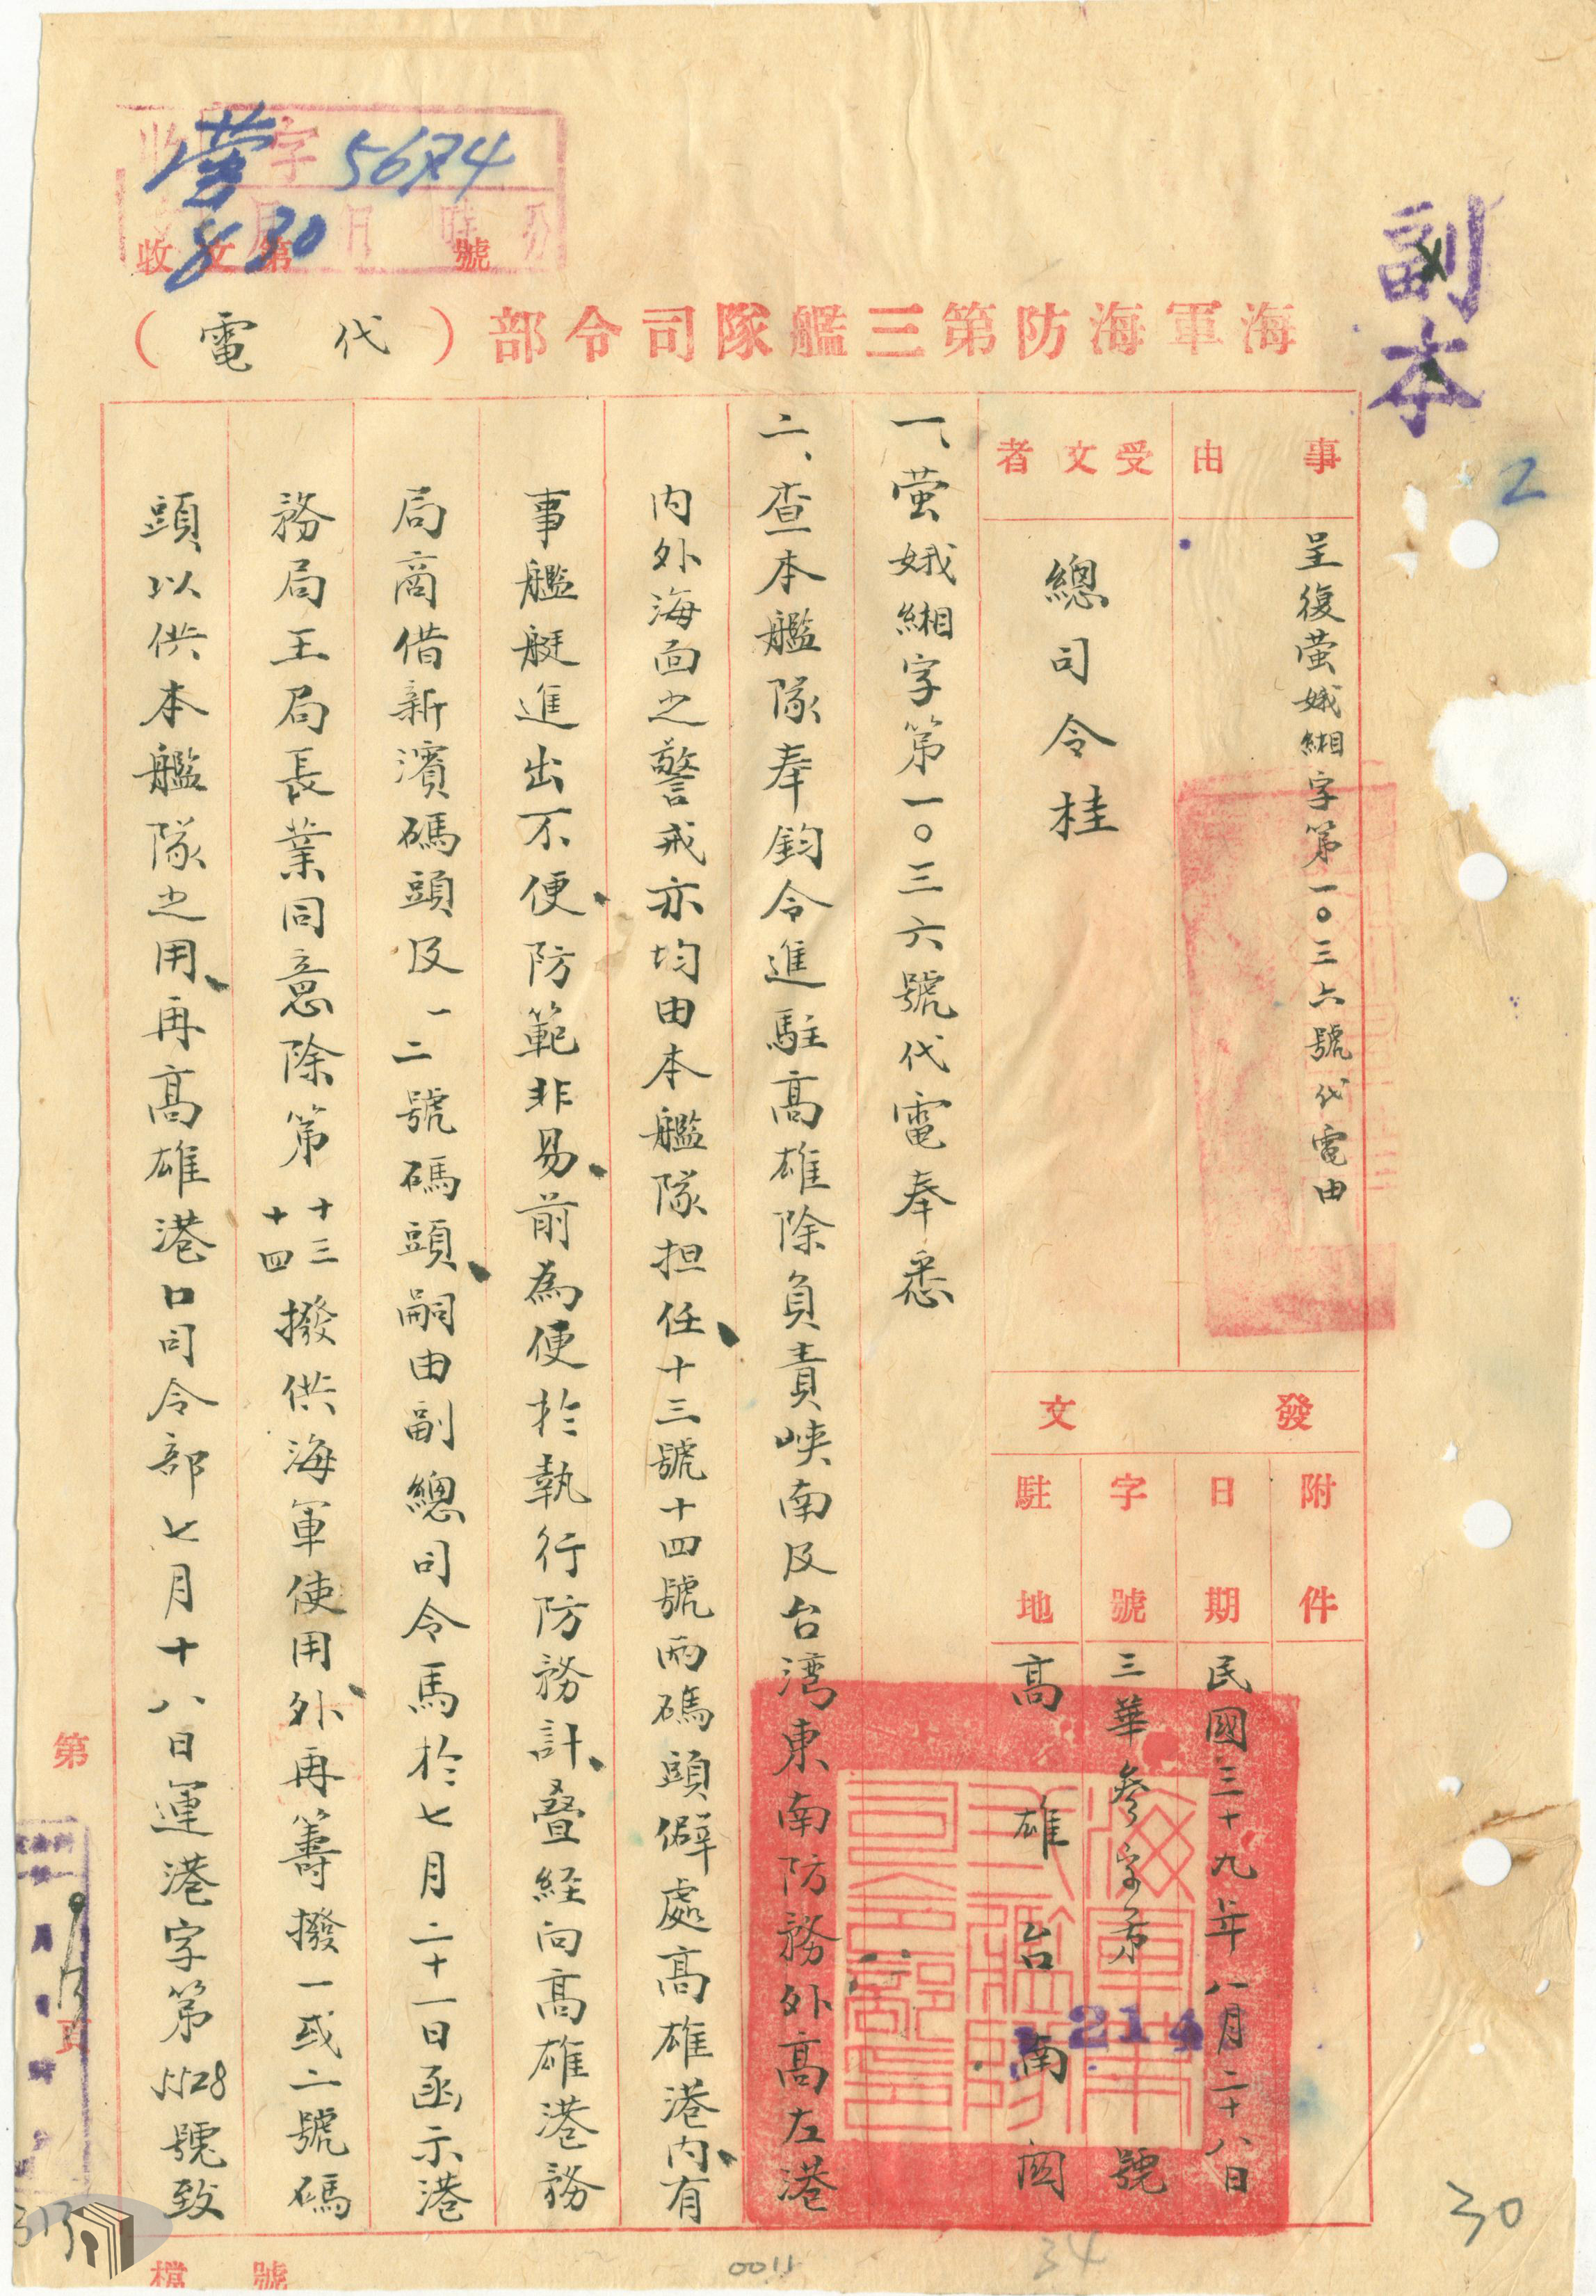 副本
2
字 5674
8 30
收文第 號
海軍海防第三艦隊司令部(代電)
事由
呈復萤娥緗字第一〇三六號代電由
受文者
總司令桂
發文
附件
日期
民國三十九年八月二十八日
字號
三華參字第 214 號
駐地
高雄台南園
一、萤娥緗字第一〇三六號代電奉悉
二、查本艦隊奉鈞令進駐高雄除負責峽南及台灣東南防務外高左港
內外海面之警戒亦均由本艦隊担任十三號十四號兩碼頭僻處高雄港內有
事艦艇進出不便防範非易前為便於執行防務計叠經向高雄港務
局商借新濱碼頭及一二號碼頭嗣由副總司令馬於七月二十一日函示港
務局王局長業同意除第十三十四撥供海軍使用外再籌撥一或二號碼
頭以供本艦隊之用再高雄港口司令部七月十八日運港字第5528號致
第
頁
檔號
313
0011
34
30